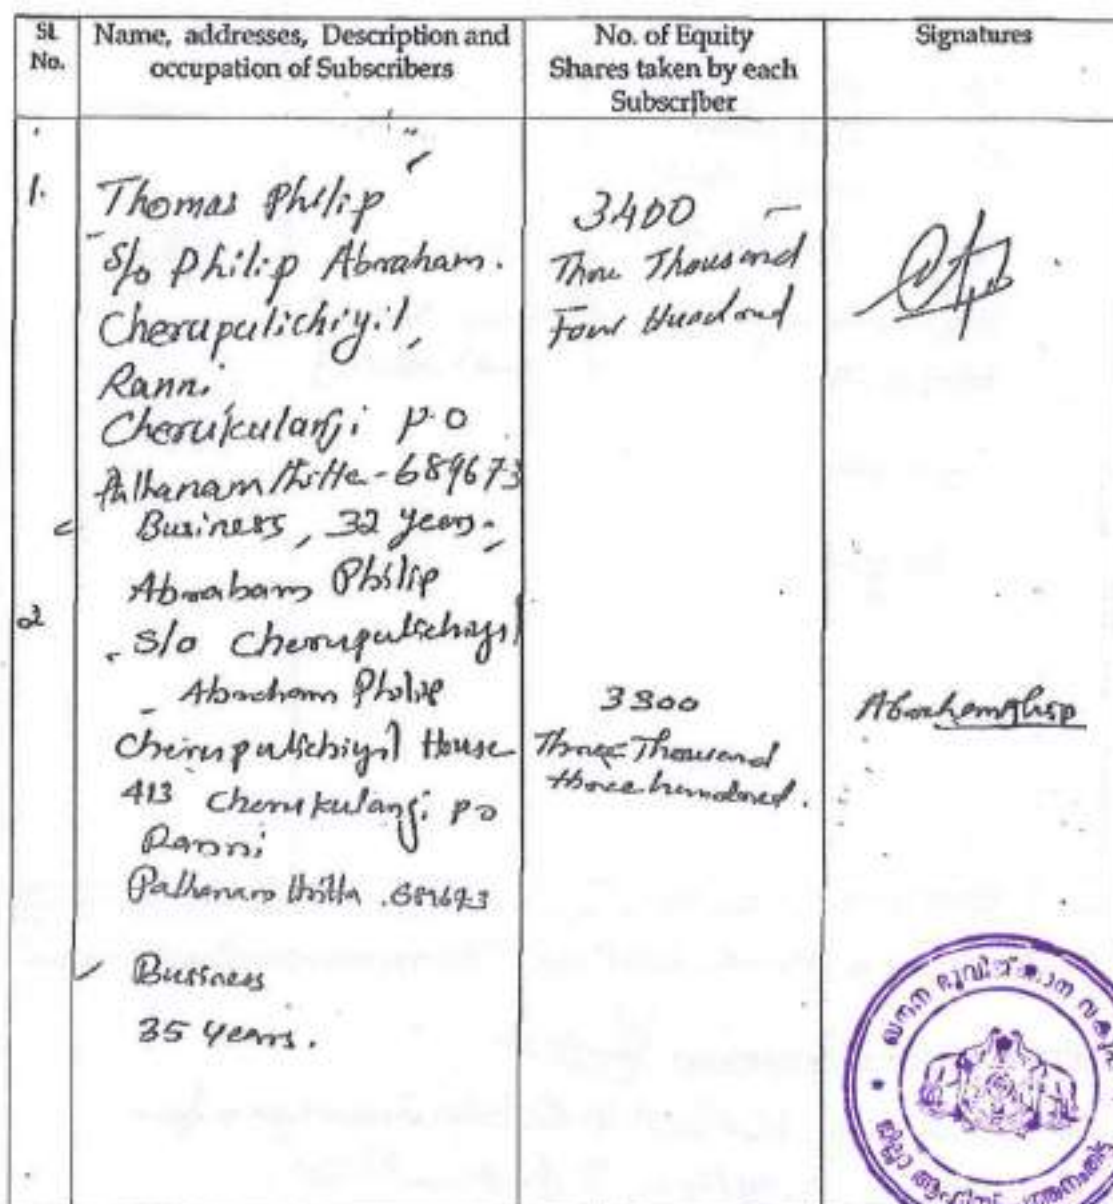 Sl. No.
Name, addresses, Description and occupation of Subscribers
No. of Equity Shares taken by each Subscriber
Signatures
1.
Thomas Philip
S/o Philip Abraham.
Cherupulichiyil,
Ranni
Cherukulanji P.O
Pathanamthitta - 689673
Business, 32 years.
3400
Three Thousand
Four Hundred
2
Abraham Philip
S/o Cherupulichiyil
Abraham Philip
Cherupulichiyil House
413 Cherukulanji PO
Ranni
Pathanamthitta . 689673
Business
35 years.
3300
Three Thousand
three hundred.
Abraham Philip
ഖനന ഭൂവിജ്ഞാന വകുപ്പ്
ജില്ലാ ആഫീസ്